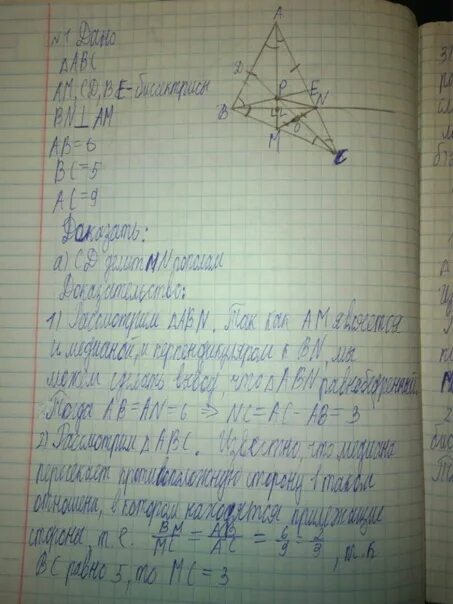 №1 Дано
△ABC
AM, CD, BE - биссектрисы
BN⊥AM
AB=6
BC=5
AC=9
Доказать:
а) CD делит MN пополам
Доказательство:
1) Рассмотрим △ABN. Так как AM является
и медианой, и перпендикуляром к BN, мы
можем сделать вывод, что △ABN равнобедренный.
Тогда AB=AN=6 ⇒ NC=AC-AB=3
2) Рассмотрим △ABC. Известно, что медиана
пересекает противоположную сторону в таком
отношении, в котором находятся прилежащие
стороны, т.е. BM/MC = AB/AC = 6/9 = 2/3, т.к
BC равно 5, то MC=3
A
D
P
E
N
B
M
C